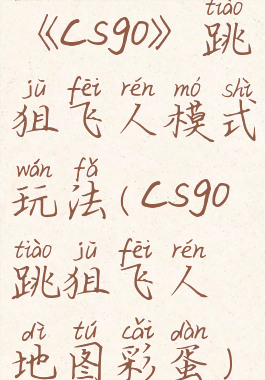 tiào
《CS90》 跳
jū fēi rén mó shì
狙飞人模式
wán fǎ
玩法(CS90
tiào jū fēi rén
跳狙飞人
dì tú cǎi dàn
地图彩蛋)